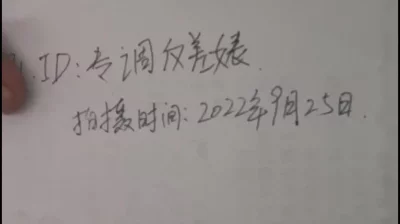 ID:专调反差婊
拍摄时间:2022年9月25日.